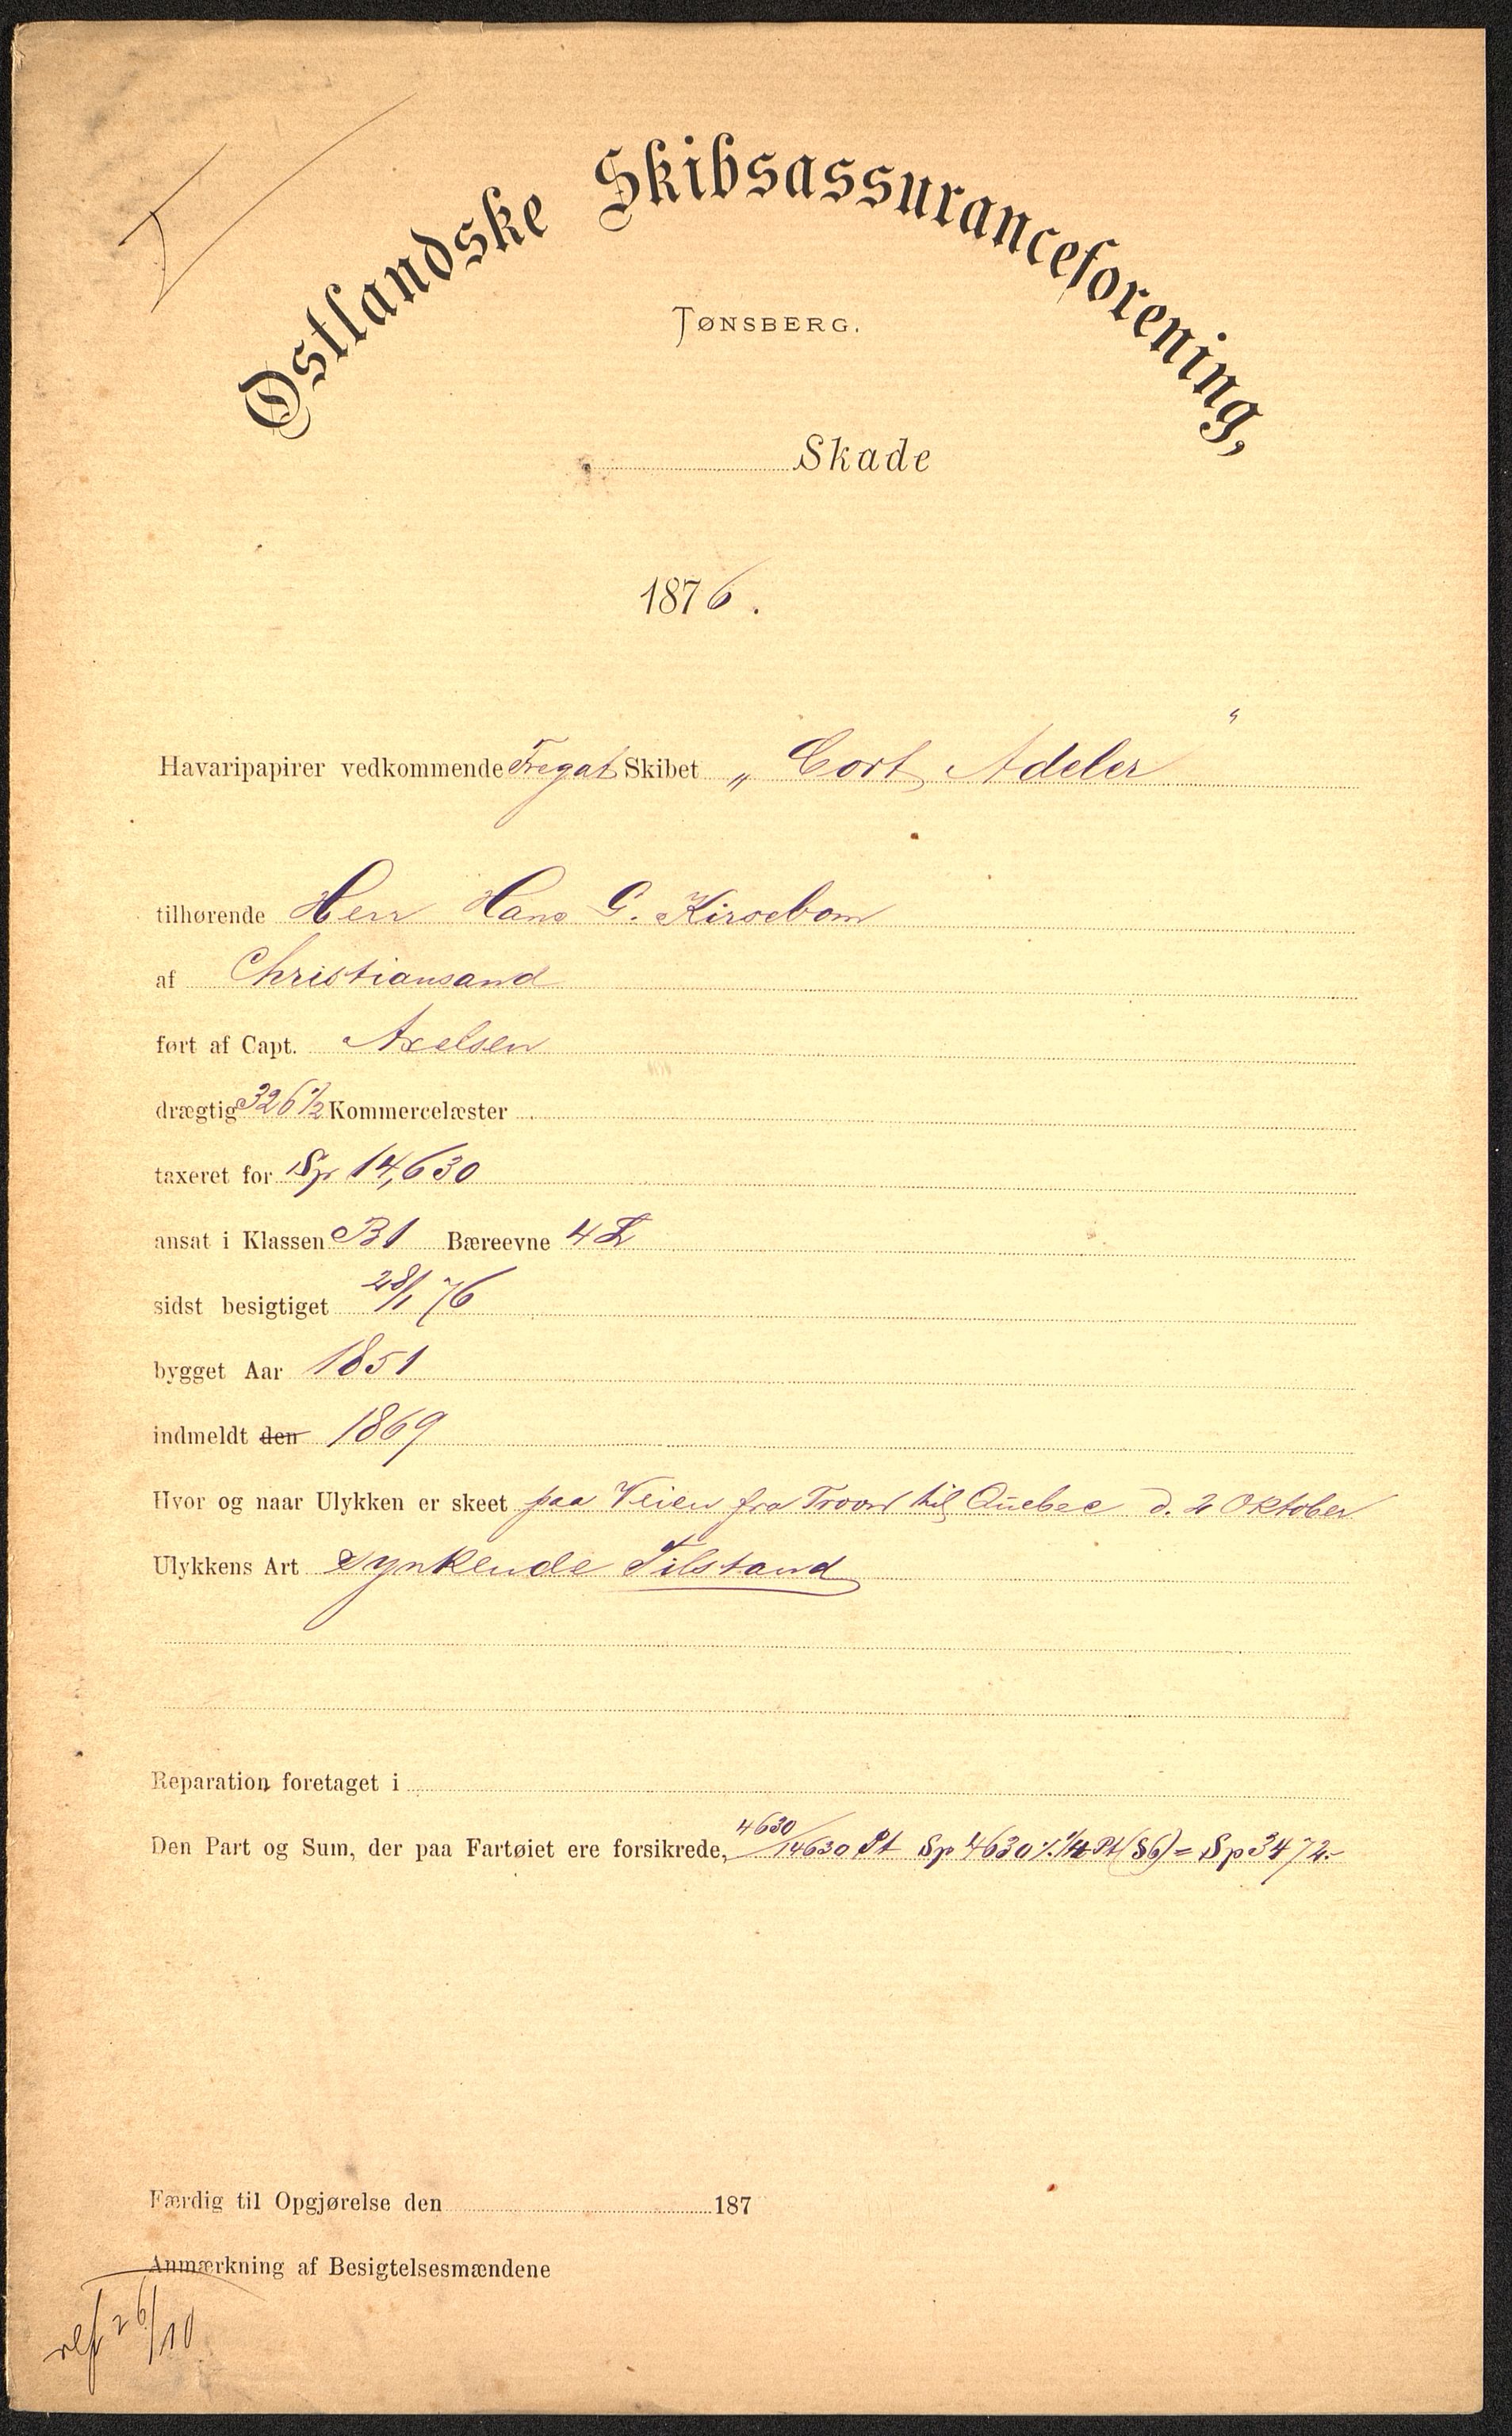 Østlandske Skibsassuranceforening,
TØNSBERG.
Skade
1876.
Havaripapirer vedkommende Fregat Skibet „Cort Adeler“
tilhørende Herr Hans G. Kirsebom
af Christiansand
ført af Capt. Axelsen
drægtig 326 1/2 Kommercelæster
taxeret for Sp 14,630
ansat i Klassen B1 Bæreevne 4 L
sidst besigtiget 28/1 76
bygget Aar 1851
indmeldt den 1869
Hvor og naar Ulykken er skeet paa Veien fra Troon til Quebec d. 2 Oktober
Ulykkens Art synkende Tilstand
Reparation foretaget i
Den Part og Sum, der paa Fartøiet ere forsikrede, 4630/14630 Pt Sp 4630 ./. 1/4 Pt (§6) = Sp 3472.-
Færdig til Opgjørelse den 187
Anmærkning af Besigtelsesmændene
ref 26/10